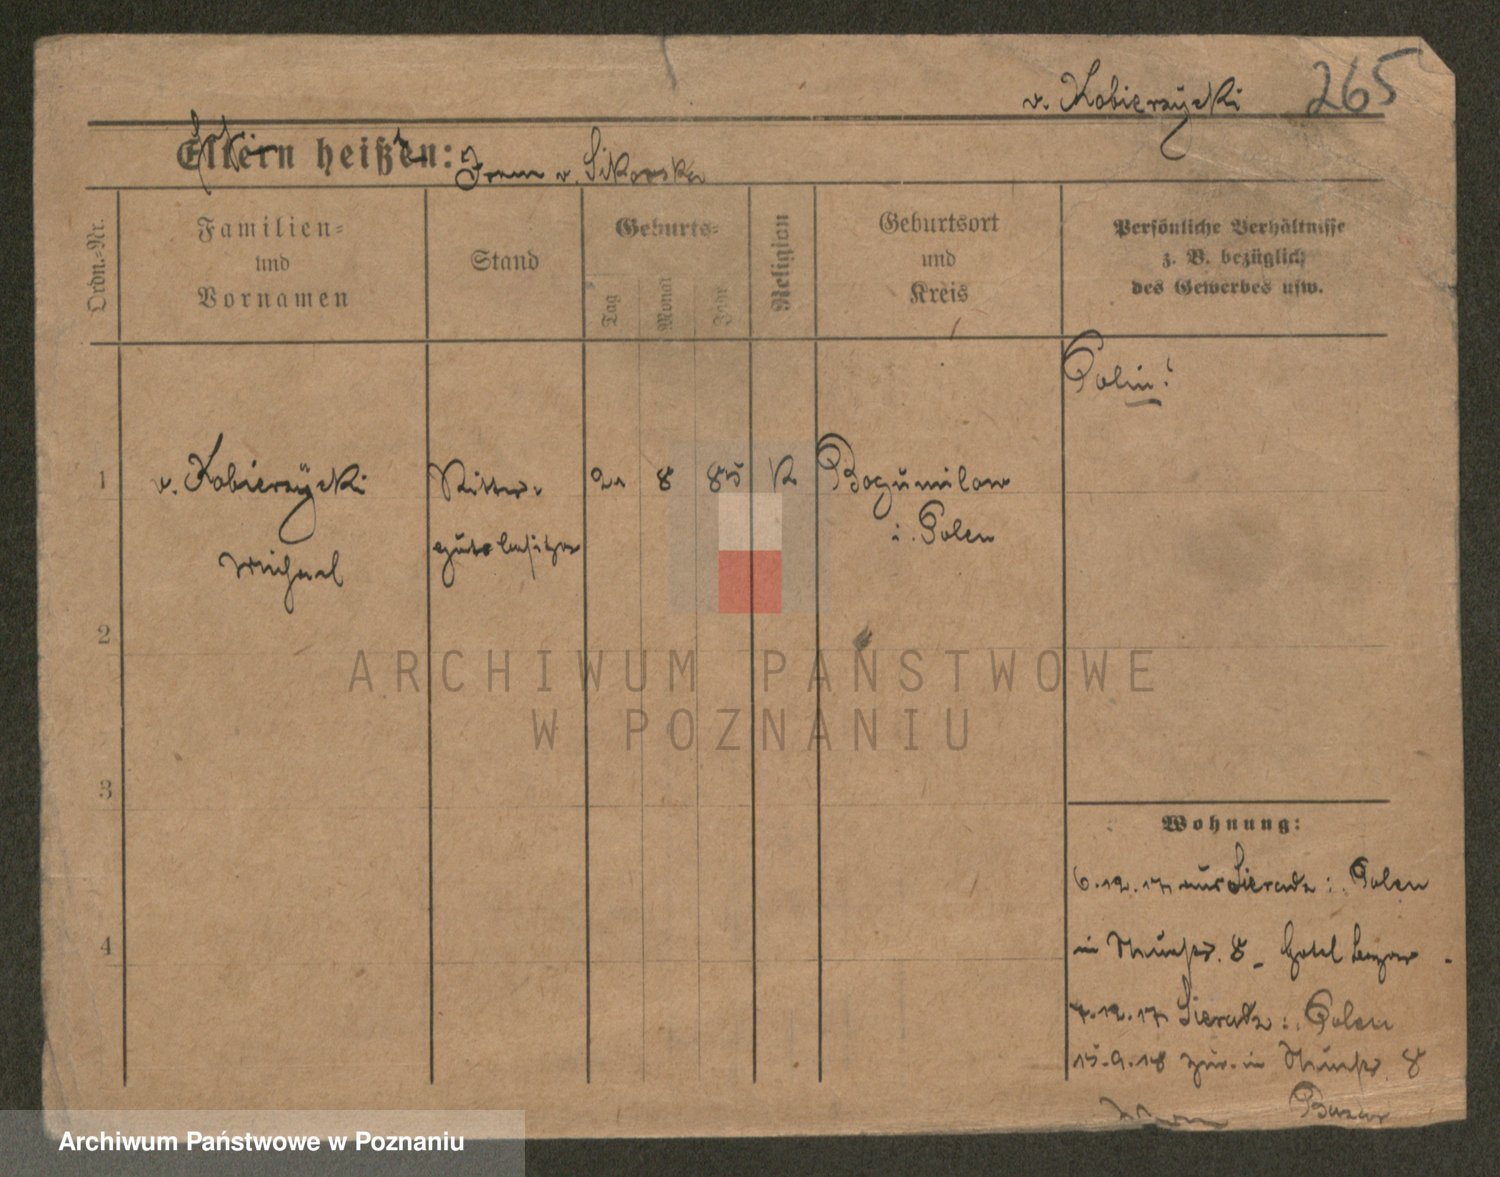 v. Kobierzÿcki 265
Eltern heißen:
v. Sikorska
Ordn.-Nr.
Familien-
und
Vornamen
Stand
Geburts-
Tag
Monat
Jahr
Religion
Geburtsort
und
Kreis
Persönliche Verhältnisse
z. B. bezüglich
des Gewerbes usw.
1 v. Kobierzÿcki Ritter- 21 8 85 K Bogumilow
gutsbesitzer i. Polen
Michael
2
3
4
ARCHIWUM PAŃSTWOWE
W POZNANIU
Wohnung:
6.12.17 aus Sieradz i. Polen
in Neustr. 8 - Hotel Bazar -
7.12.17 Sieradz i. Polen
15.9.18 zur. in Neustr. 8
Bazar
Archiwum Państwowe w Poznaniu